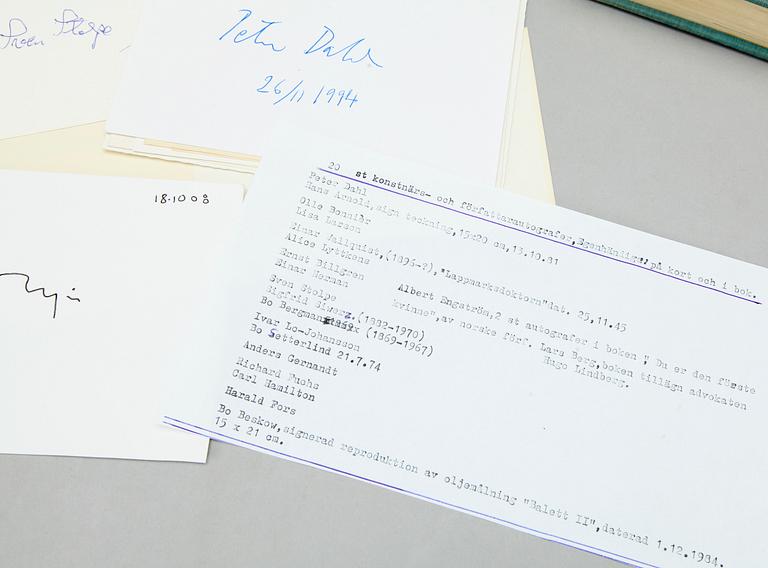 Sven Stolpe
Peter Dahl
26/11 1994
18.10 08
20 st konstnärs- och författarautografer, Egenhändiga: på kort och i bok.
Peter Dahl
Hans Arnold, sign teckning, 15x20 cm, 13.10.81
Olle Bonniér
Lisa Larson
Einar Wallquist, (1896-?), "Lappmarksdoktorn" dat. 25,11.45
Alice Lyttkens
Albert Engström, 2 st autografer i boken; " Du er den fürste
Ernst Billgren
kvinne", av norske förf. Lars Berg, boken tillägn advokaten
Einar Nerman
Hugo Lindberg.
Sven Stolpe
Sigfrid Siwerz. (1882-1970)
Bo Bergman (1869-1967)
Ivar Lo-Johansson
Bo Setterlind 21.7.74
Anders Gernandt
Richard Fuchs
Carl Hamilton
Harald Fors
Bo Beskow, signerad reproduktion av oljemålning "Balett II", daterad 1.12.1984.
15 x 21 cm.